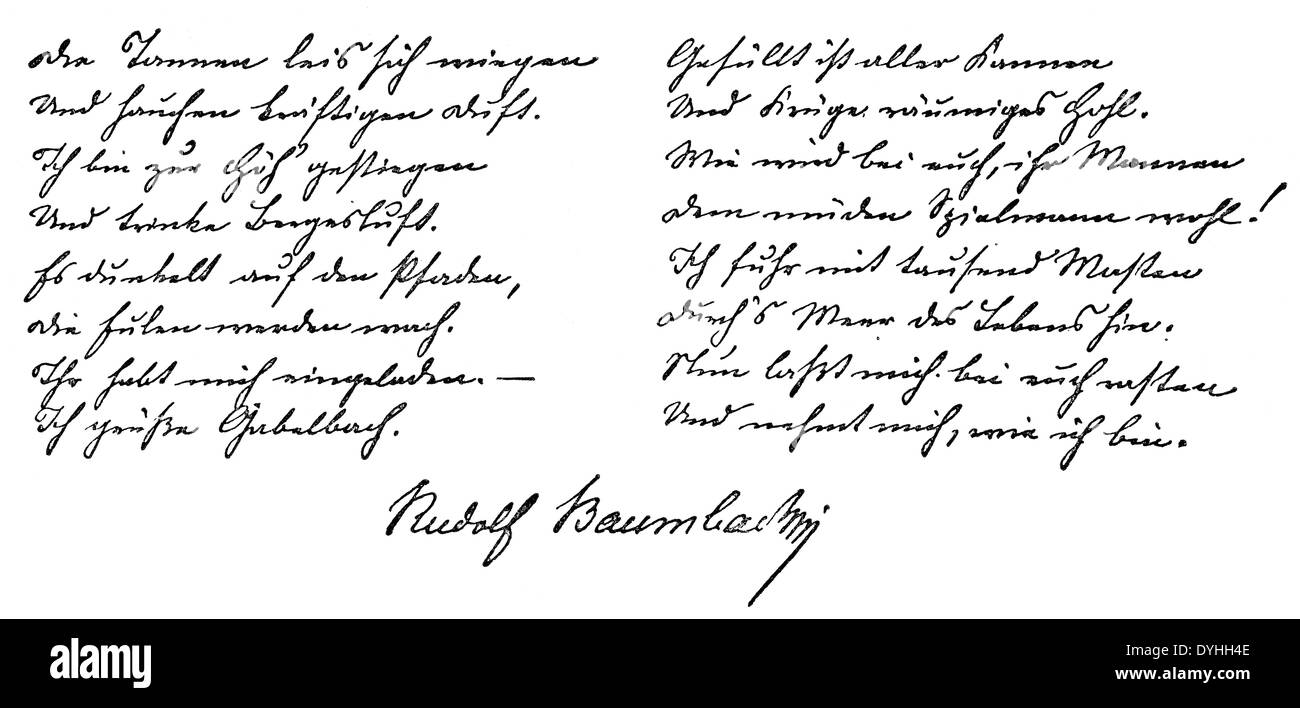 Die Tannen leis sich wiegen
Und hauchen kräftigen Duft.
Ich bin zur Höh' gestiegen
Und trinke Bergesluft.
Es dunkelt auf den Pfaden,
Die Eulen werden wach.
Ihr habt mich eingeladen. —
Ich grüße Gabelbach.
Gefüllt ist aller Kannen
Und Krüge räumiges Hohl.
Wie wird bei euch, ihr Mannen
Dem müden Spielmann wohl!
Ich fuhr mit tausend Masten
Durch's Meer des Lebens hin.
Nun laßt mich bei euch rasten
Und nehmt mich, wie ich bin.
Rudolf Baumbach
alamy
Image ID: DYHH4E
www.alamy.com